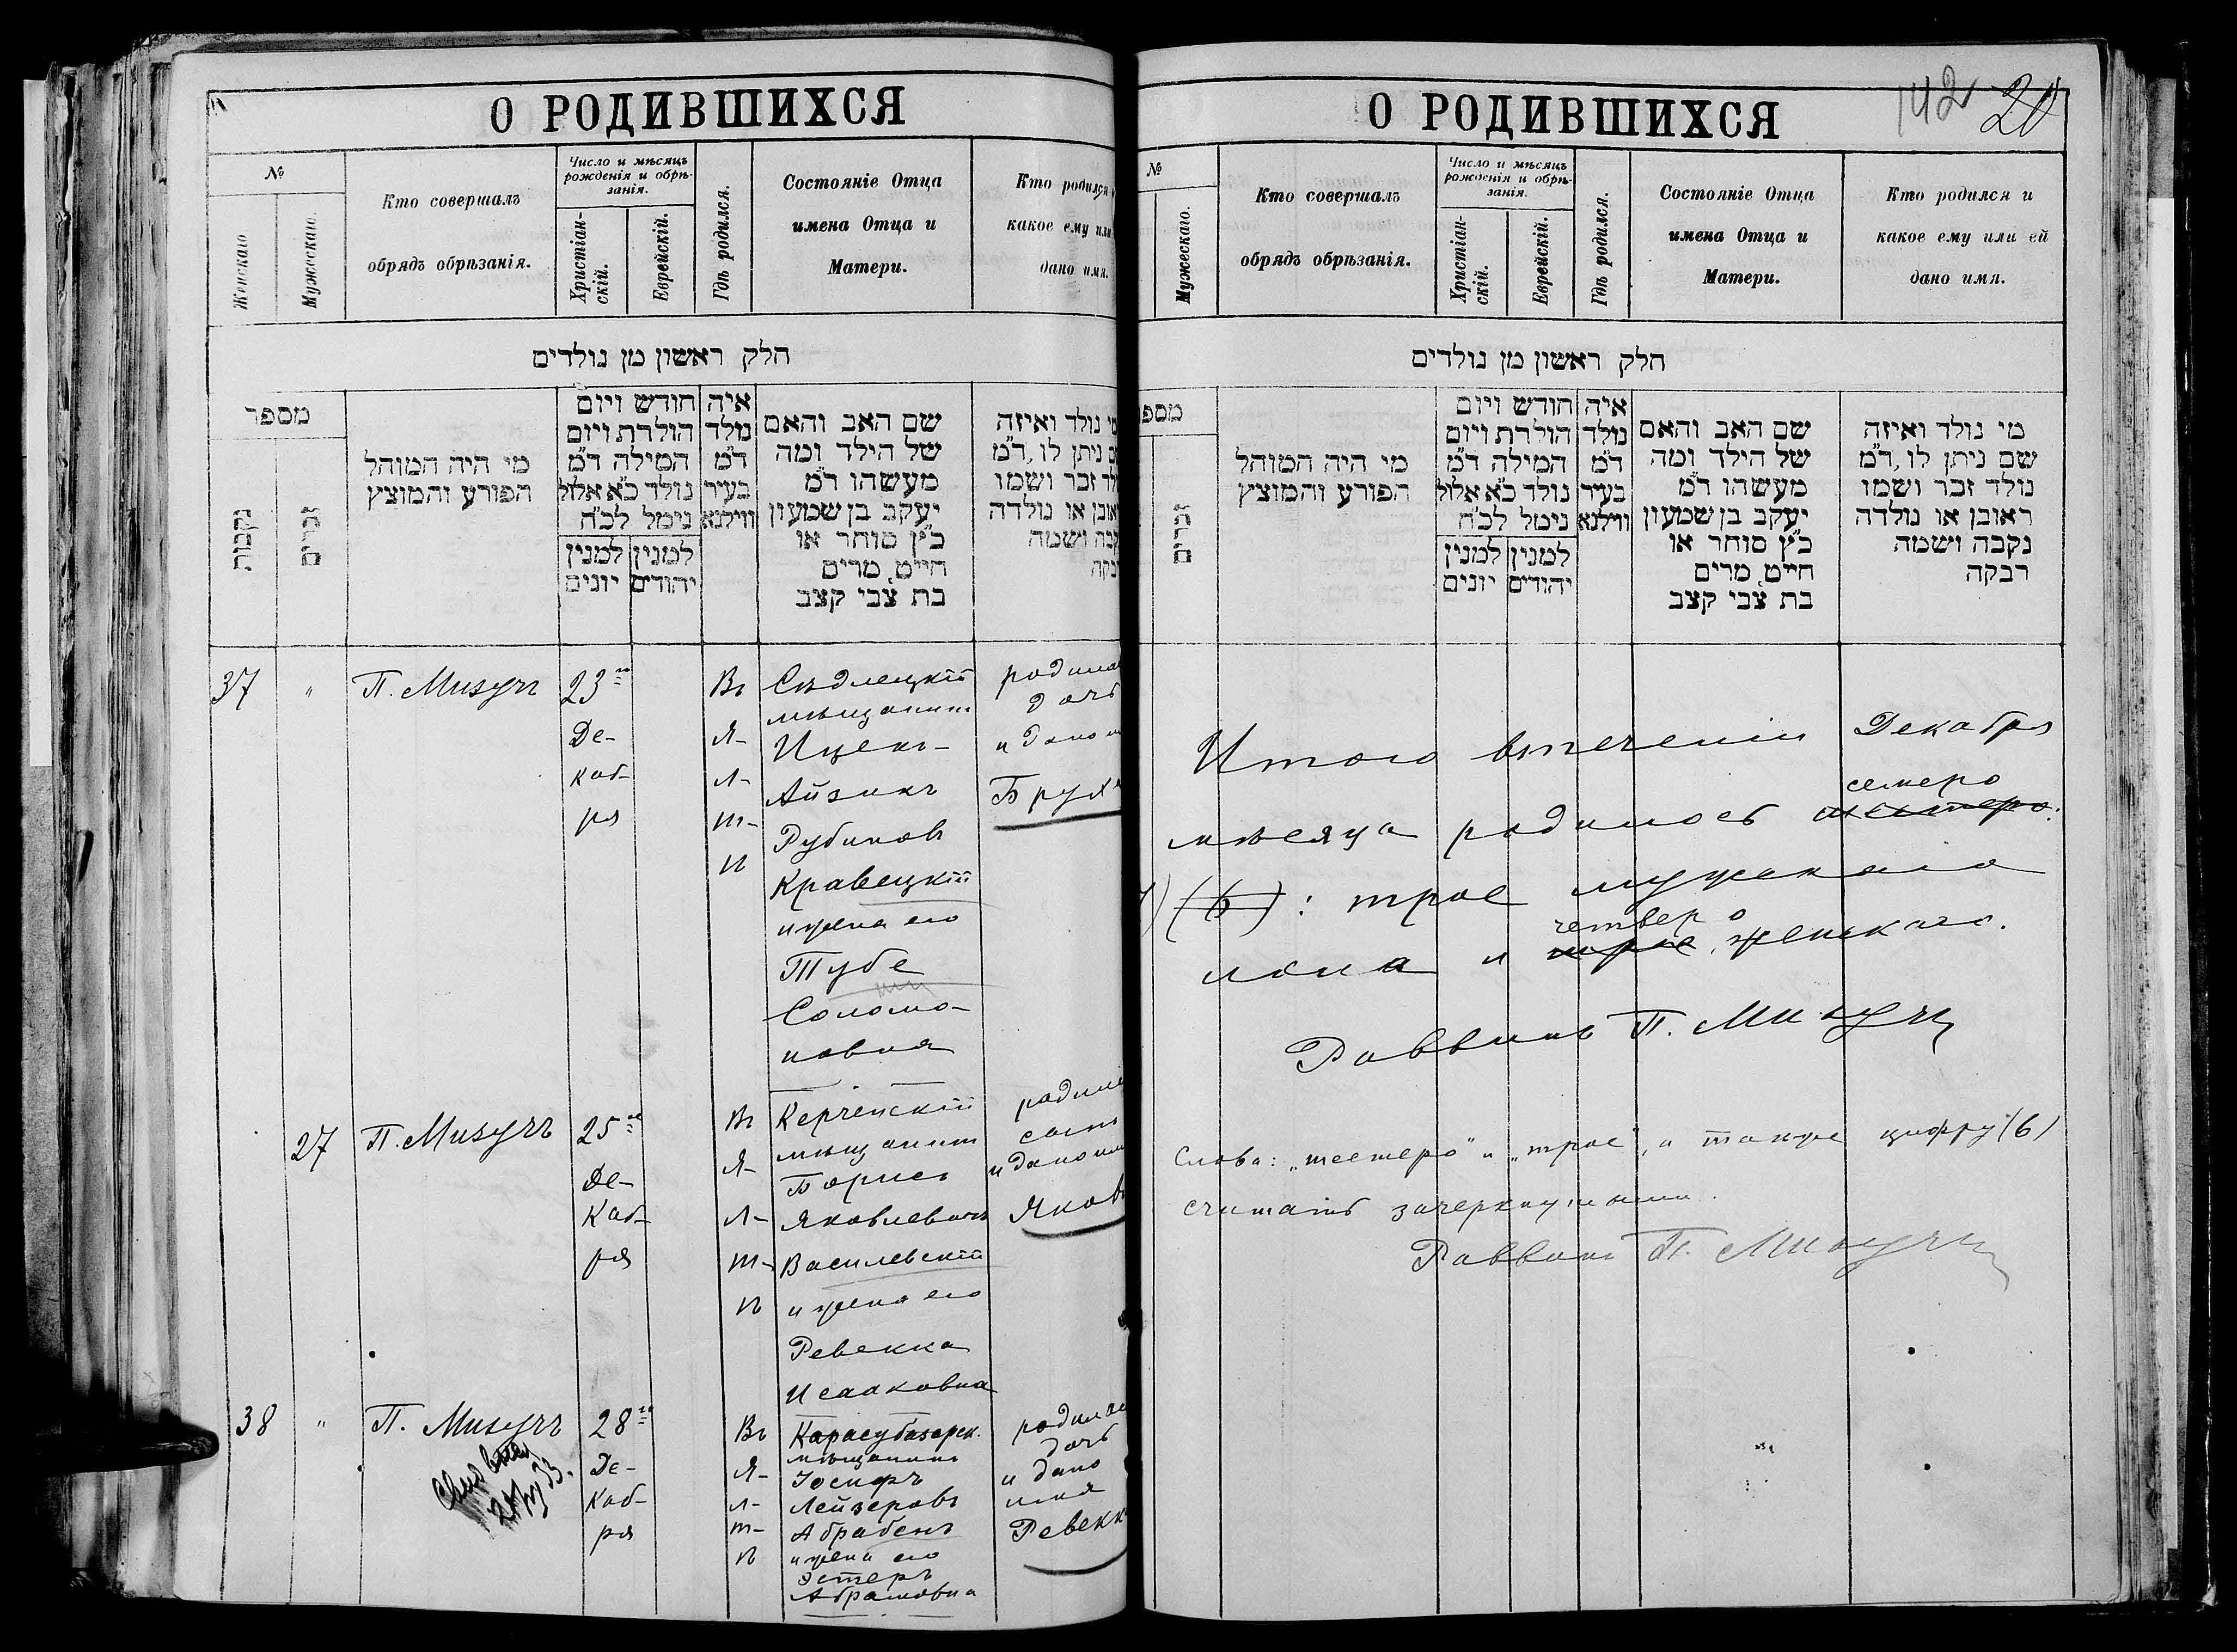 О РОДИВШИХСЯ
№
Женскаго
Мужескаго.
Кто совершалъ
обрядъ обрѣзанія.
Число и мѣсяцъ
рожденія и обрѣ-
занія.
Христіан-
скій.
Еврейскій.
Гдѣ родился.
Состояніе Отца
имена Отца и
Матери.
Кто родился
какое ему или
дано имя.
חלק ראשון מן נולדים
מספר
נקבות
זכרים
מי היה המוהל
הפורע והמוצץ
חודש ויום
הולדת ויום
המילה ד״מ
נולד כ״א אלול
נימל לכ״ח
למנין
יונים
למנין
יהודים
איה
נולד
ד״מ
בעיר
ווילנא
שם האב והאם
של הילד ומה
מעשהו ד״מ
יעקב בן שמעון
כ״ץ סוחר או
חייט, מרים
בת צבי קצב
נולד ואיזה
ניתן לו, ד״מ
זכר ושמו
או נולדה
ושמה
37
"
П. Мизучъ
23го
Де-
каб-
ря
Въ
Я-
л-
т-
ѣ
Сѣдлецкій
мѣщанинъ
Ицекъ-
Айзикъ
Рубиновъ
Кравецкій
и жена его
Тубе
Соломо-
новна
родилась
дочь
и дано
Бруха
27
П. Мизучъ
25го
Де-
каб-
ря
Въ
Я-
л-
т-
ѣ
Керченскій
мѣщанинъ
Борисъ
Яковлевичъ
Василевскій
и жена его
Ревекка
Исааковна
родился
сынъ
и дано имя
Яковъ
38
"
П. Мизучъ
28го
Де-
каб-
ря
Въ
Я-
л-
т-
ѣ
Карасубазарск.
мѣщанинъ
Іосифъ
Лейзеровъ
Абрабенъ
и жена его
Эстеръ
Абрамовна
родилась
дочь
и дано
имя
Ревекка
О РОДИВШИХСЯ
142
20
№
Мужескаго.
Кто совершалъ
обрядъ обрѣзанія.
Число и мѣсяцъ
рожденія и обрѣ-
занія.
Христіан-
скій.
Еврейскій.
Гдѣ родился.
Состояніе Отца
имена Отца и
Матери.
Кто родился и
какое ему или ей
дано имя.
חלק ראשון מן נולדים
מספ
זכרים
מי היה המוהל
הפורע והמוצץ
חודש ויום
הולדת ויום
המילה ד״מ
נולד כ״א אלול
נימל לכ״ח
למנין
יונים
למנין
יהודים
איה
נולד
ד״מ
בעיר
ווילנא
שם האב והאם
של הילד ומה
מעשהו ד״מ
יעקב בן שמעון
כ״ץ סוחר או
חייט, מרים
בת צבי קצב
מי נולד ואיזה
שם ניתן לו, ד״מ
נולד זכר ושמו
ראובן או נולדה
נקבה ושמה
רבקה
Итого въ теченіи Декабря
семеро
мѣсяца родилось шестеро:
(6): трое мужскаго
четверо
пола и трое женскаго.
Раввинъ П. Мизучъ
Слова: „шестеро" и „трое", а также цифру (6)
считать зачеркнутыми.
Раввинъ П. Мизучъ